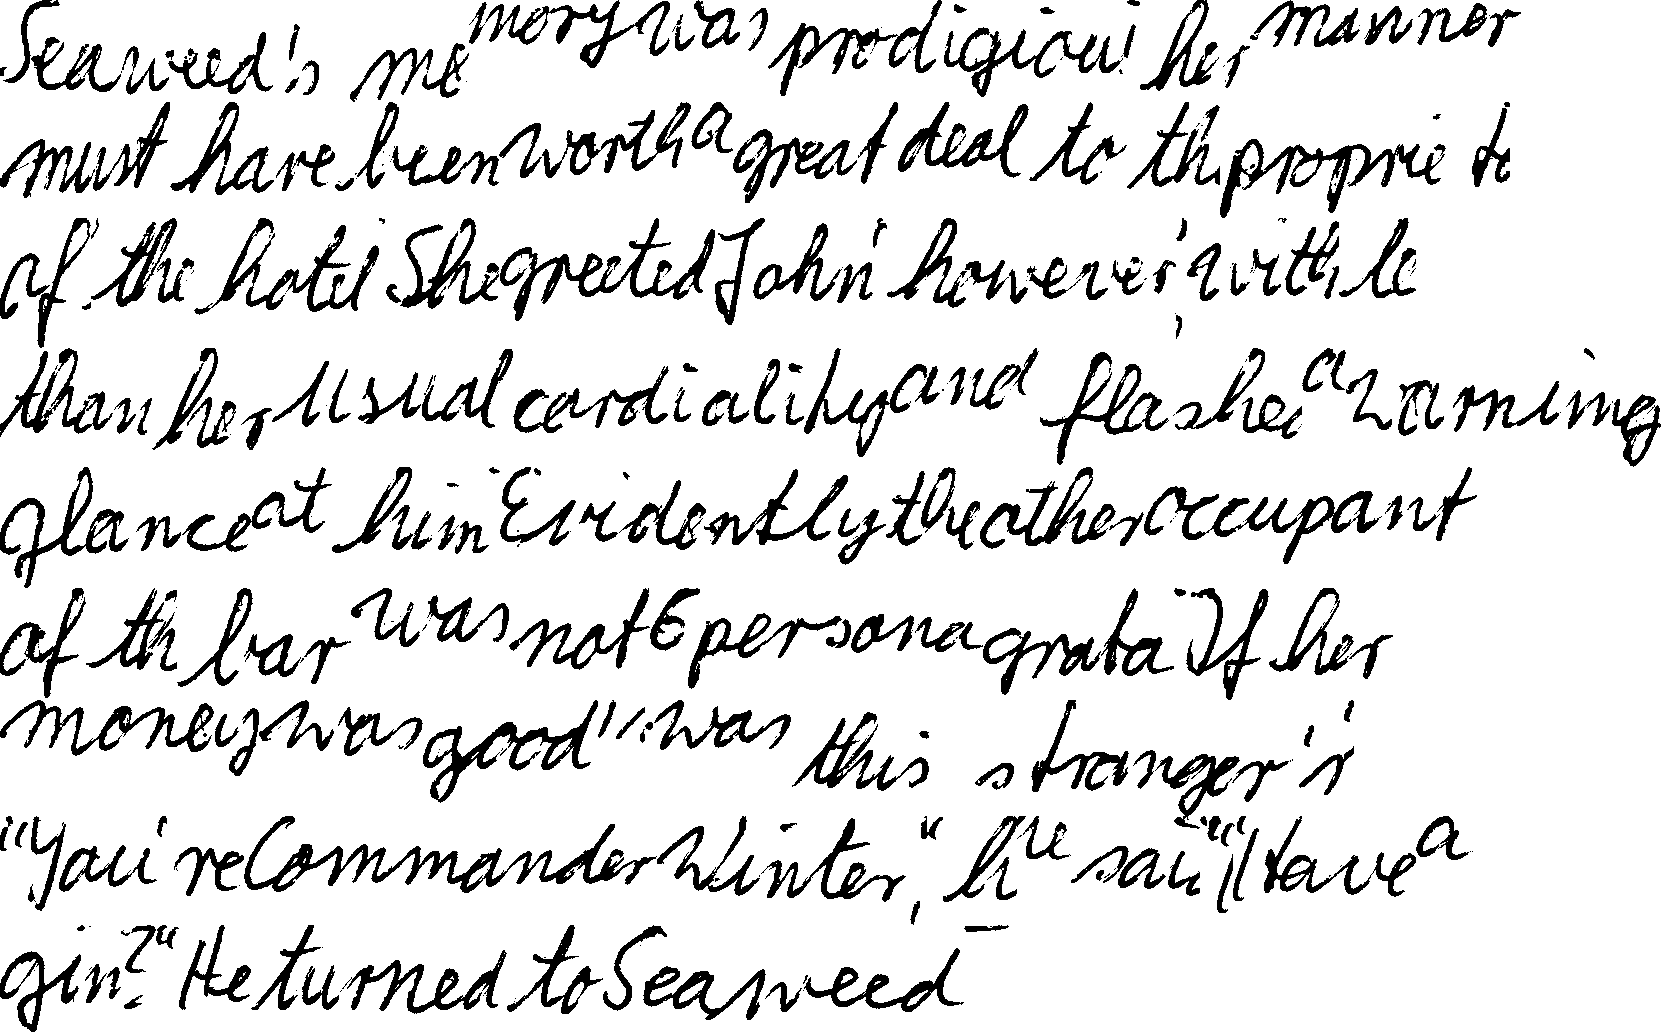 Seaweed's memory was prodigious her manner
must have been worth a great deal to th proprie to
of the hotel She greeted John however, with le
than her usual cordiality and flashed a warning
glance at him Evidently the other occupant
of th bar was not persona grata If her
money was good was this stranger's
"You're Commander Winter," he said "Have a
gin?" He turned to Seaweed